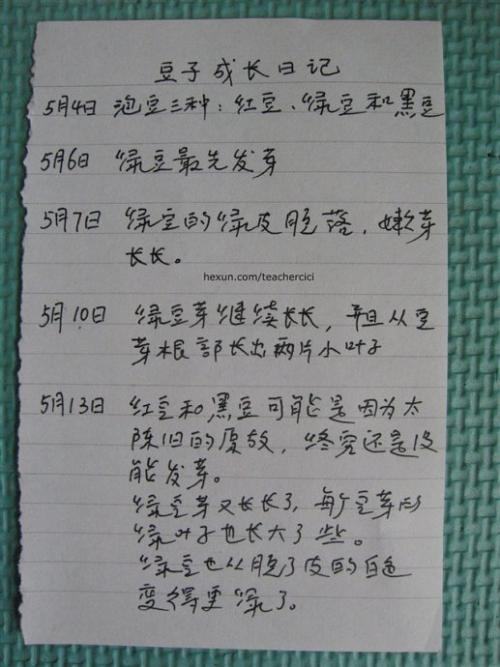 豆子成长日记
5月4日 泡豆三种：红豆、绿豆和黑豆
5月6日 绿豆最先发芽
5月7日 绿豆的绿皮脱落，嫩芽
长长。
hexun.com/teachercici
5月10日 绿豆芽继续长长，并且从豆
芽根部长出两片小叶子
5月13日 红豆和黑豆可能是因为太
陈旧的原故，终究还是没
能发芽。
绿豆芽又长长了，每个豆芽的
绿叶子也长大了些。
绿豆也从脱了皮的白色
变得更绿了。